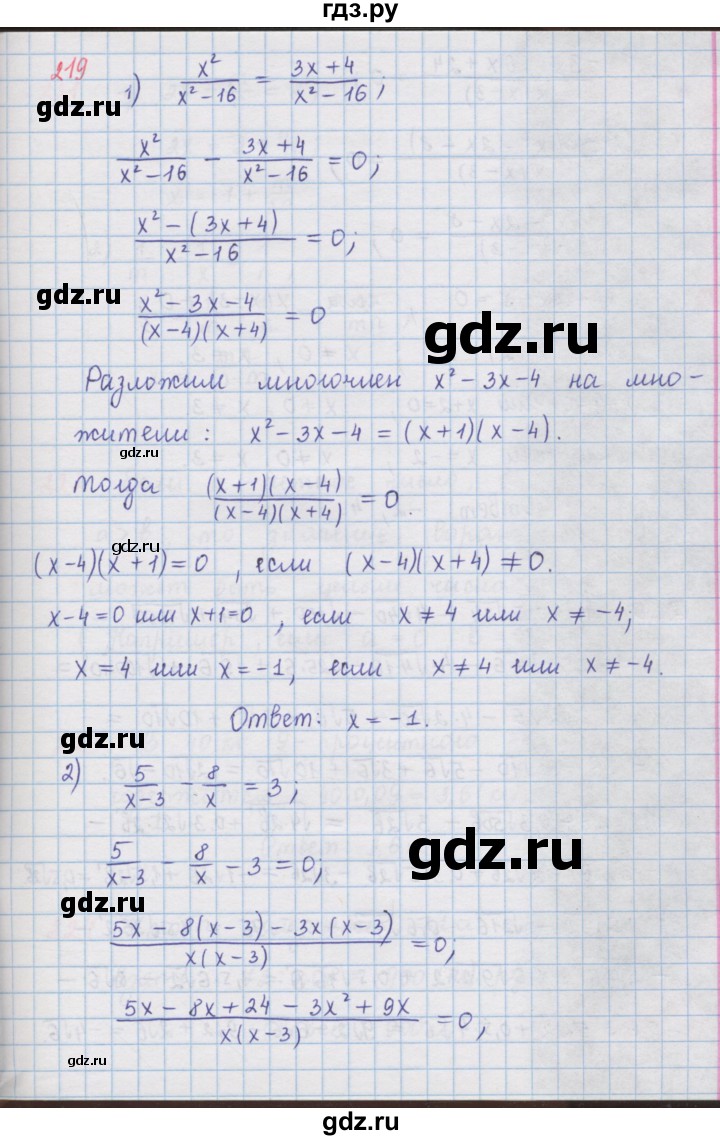 гдз.ру
219
1) x²/(x²-16) = (3x+4)/(x²-16);
gdz.ru
x²/(x²-16) - (3x+4)/(x²-16) = 0;
(x²-(3x+4))/(x²-16) = 0;
gdz.ru
(x²-3x-4)/((x-4)(x+4)) = 0
gdz.ru
Разложим многочлен x²-3x-4 на мно-
жители: x²-3x-4 = (x+1)(x-4).
gdz.ru
Тогда ((x+1)(x-4))/((x-4)(x+4)) = 0.
gdz.ru
(x-4)(x+1)=0, если (x-4)(x+4) ≠ 0.
x-4=0 или x+1=0, если x ≠ 4 или x ≠ -4;
x=4 или x=-1, если x ≠ 4 или x ≠ -4.
Ответ: x=-1.
gdz.ru
2) 5/(x-3) - 8/x = 3;
5/(x-3) - 8/x - 3 = 0;
gdz.ru
(5x-8(x-3)-3x(x-3))/(x(x-3)) = 0;
gdz.ru
(5x-8x+24-3x²+9x)/(x(x-3)) = 0;
gdz.ru
gdz.ru